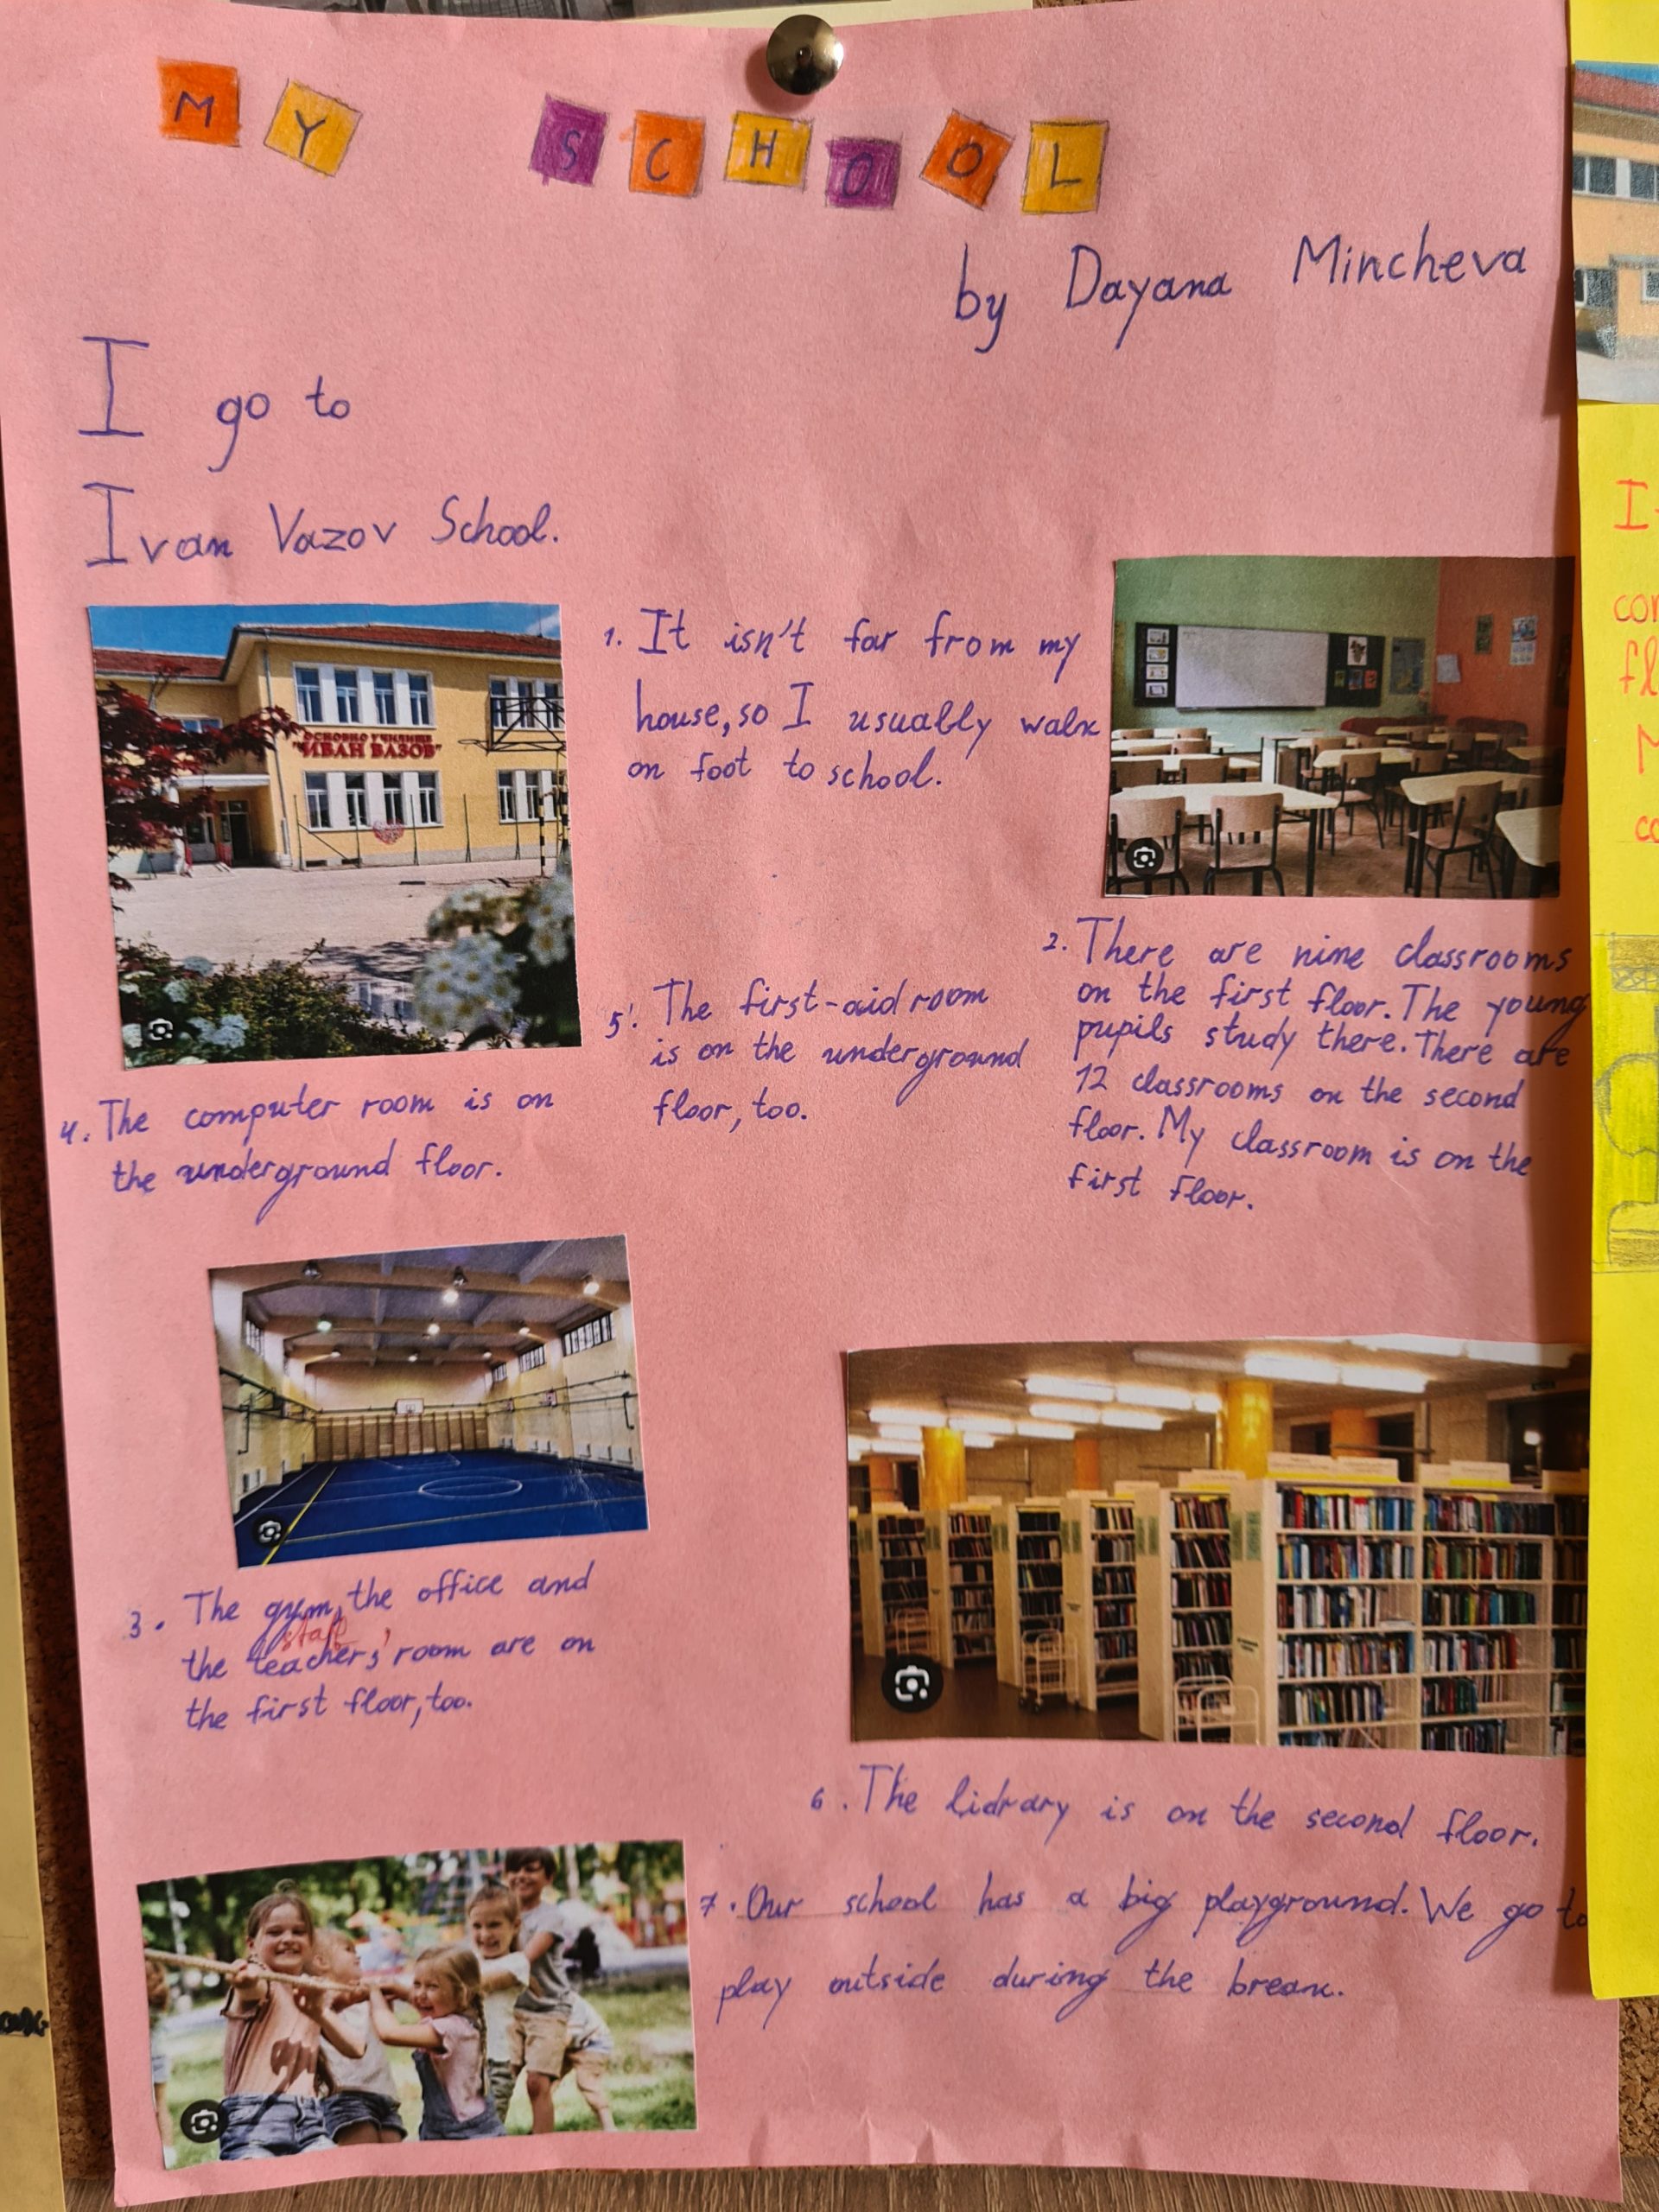 MY SCHOOL
by Dayana Mincheva
I go to
Ivan Vazov School.
ОСНОВНО УЧИЛИЩЕ
"ИВАН ВАЗОВ"
1. It isn't far from my
house, so I usually walk
on foot to school.
2. There are nine classrooms
on the first floor. The young
pupils study there. There are
12 classrooms on the second
floor. My classroom is on the
first floor.
5. The first-aid room
is on the underground
floor, too.
4. The computer room is on
the underground floor.
3. The gym, the office and
staff
the teachers' room are on
the first floor, too.
6. The lidrary is on the second floor.
7. Our school has a big playground. We go to
play outside during the break.
I
con
fl
M
co